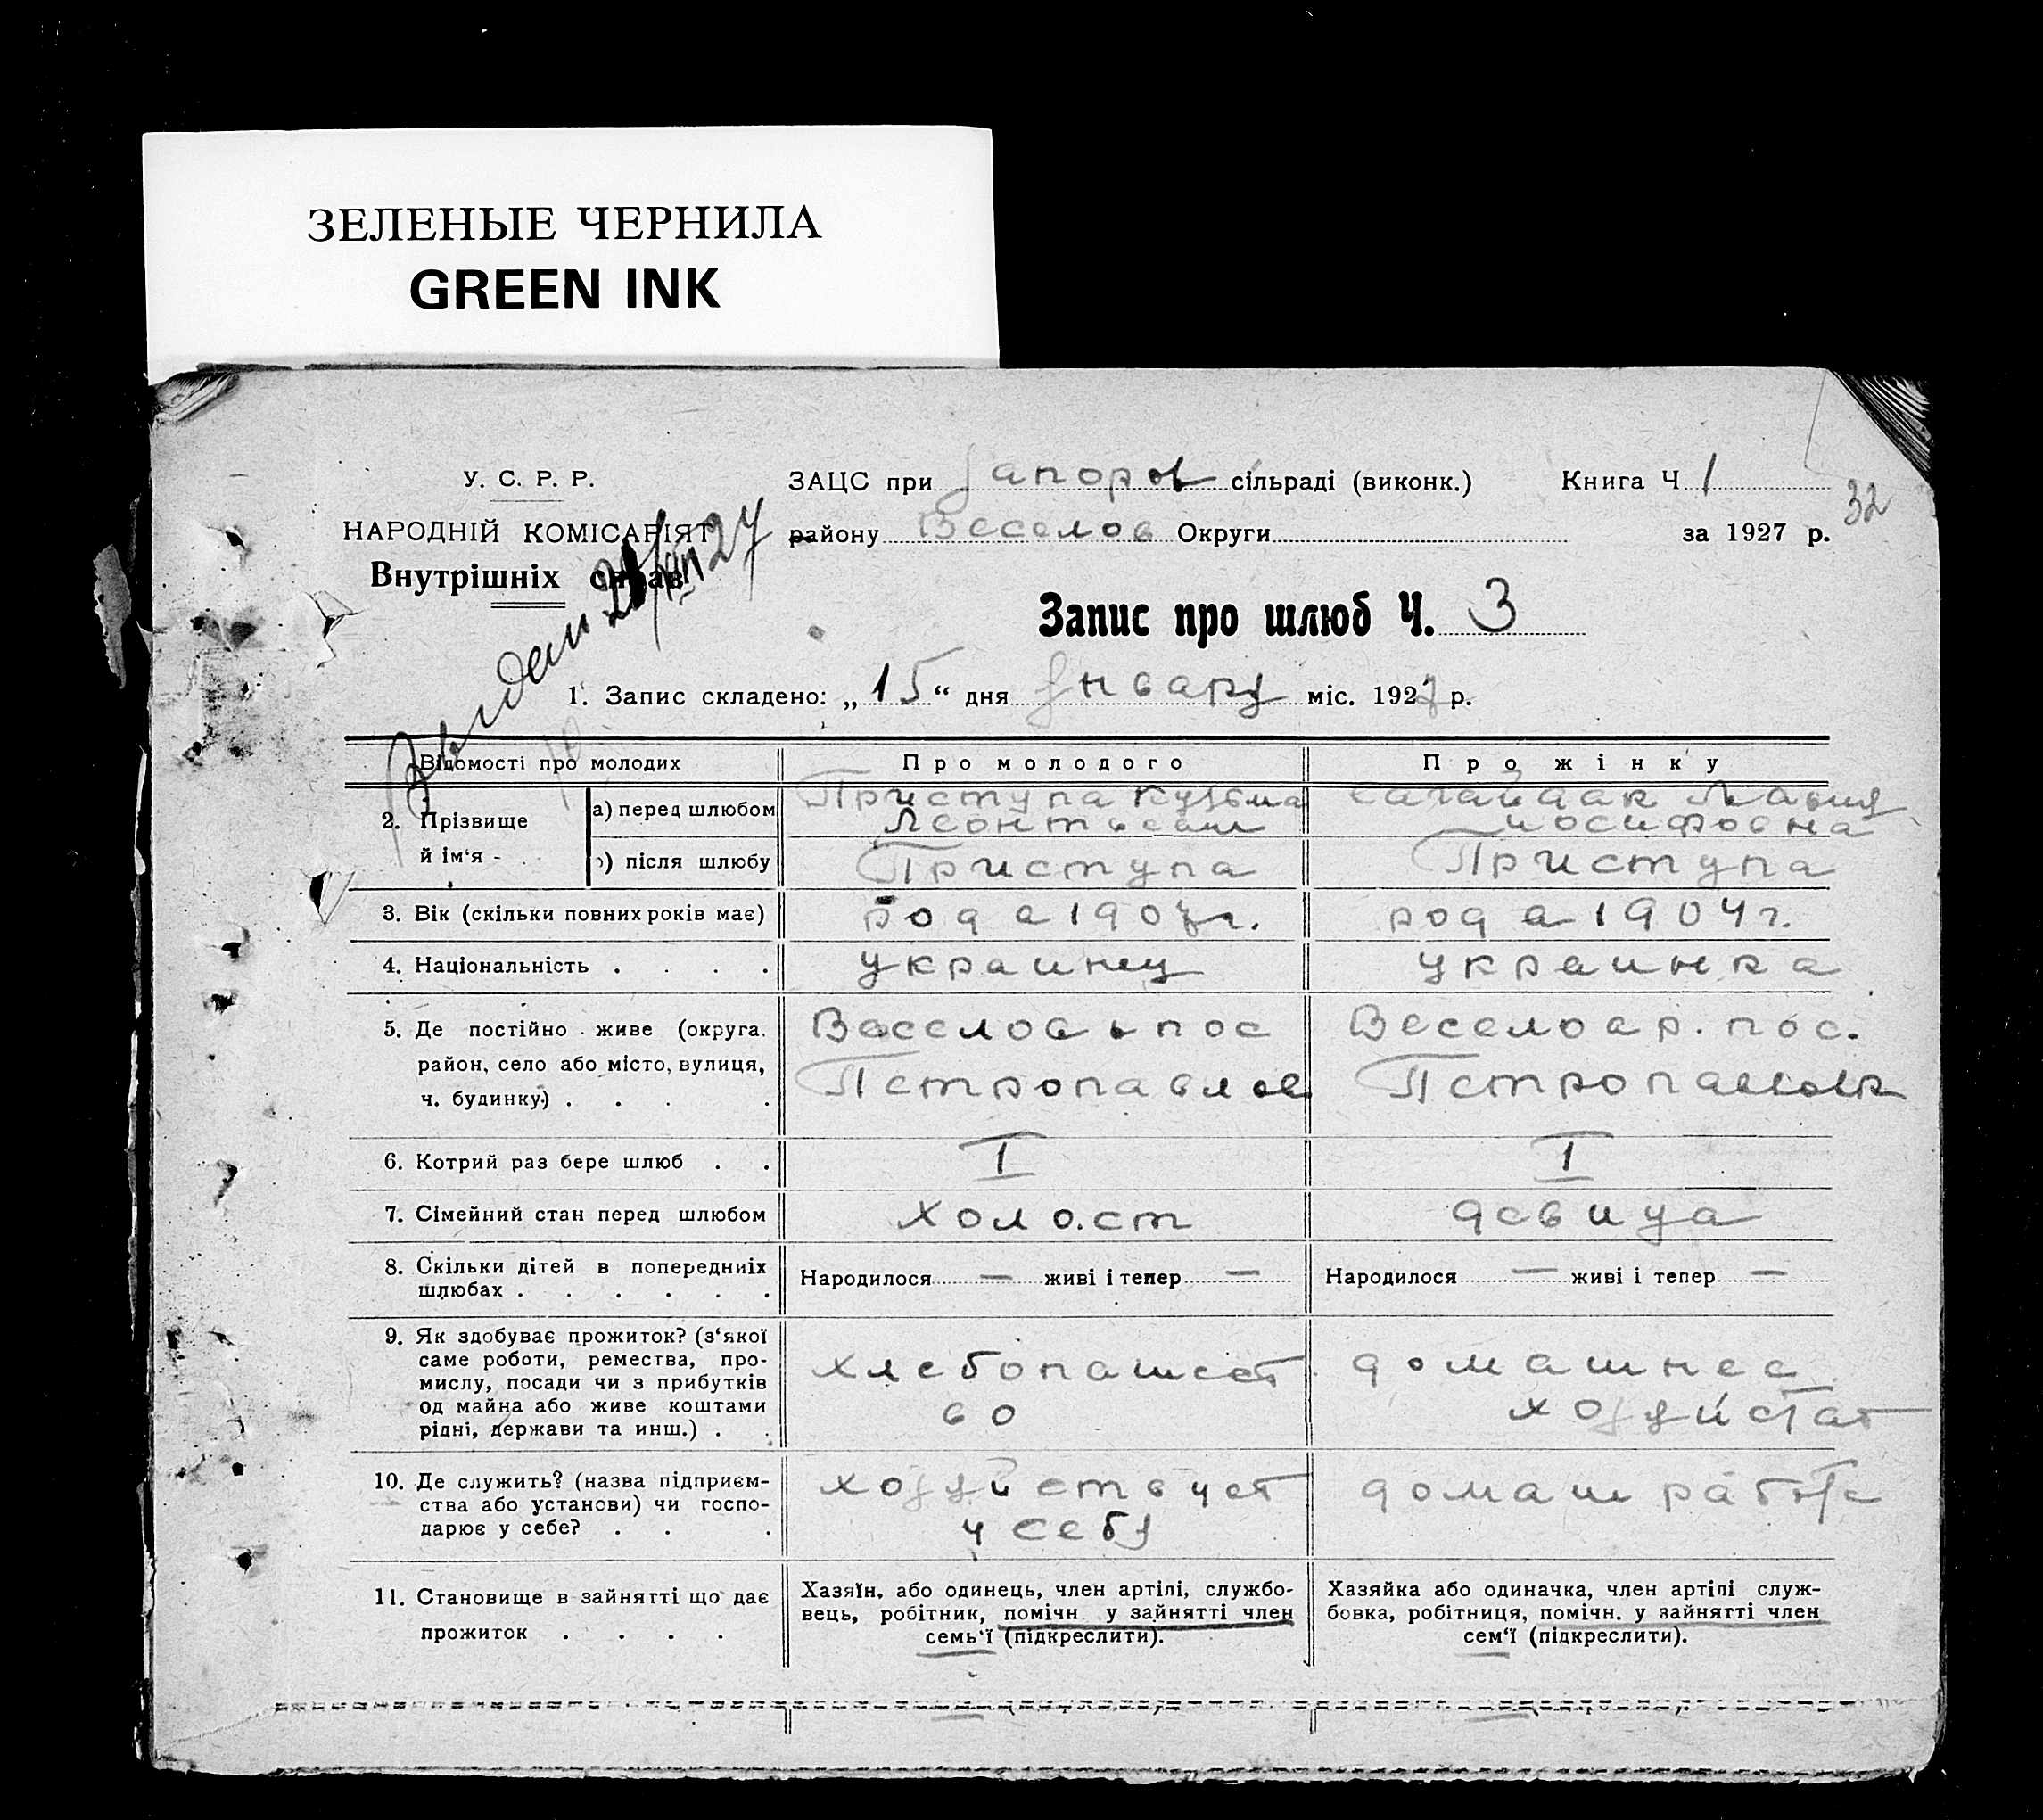 ЗЕЛЕНЫЕ ЧЕРНИЛА
GREEN INK
У. С. Р. Р.
НАРОДНІЙ КОМІСАРІЯТ
Внутрішніх справ
ЗАЦС при Запоров сільраді (виконк.) Книга Ч 1
32
району Веселов Округи за 1927 р.
Запис про шлюб Ч. 3
1. Запис складено: „15“ дня Январу міс. 1927 р.
Відомості про молодих Про молодого Про жінку
2. Прізвище й ім‘я -
а) перед шлюбом Приступа Кузьма Сагайдак
Леонтьевич Иосифовна
після шлюбу Приступа Приступа
3. Вік (скільки повних років має) рода 190 г. рода 1904 г.
4. Національність . . . . украинец украинка
5. Де постійно живе (округа. Веселов пос Весело р. пос.
район, село або місто, вулиця, Петропавлов Петропавловк
ч. будинку) . . .
6. Котрий раз бере шлюб . . I I
7. Сімейний стан перед шлюбом холост девица
8. Скільки дітей в попередниіх Народилося — живі і тепер — Народилося — живі і тепер —
шлюбах . . . . . .
9. Як здобуває прожиток? (з‘якої
саме роботи, ремества, про-
мислу, посади чи з прибутків
од майна або живе коштами
рідні, держави та инш.) . .
хлебопашест
во
домашнее
хозуйства
10. Де служить? (назва підприєм-
ства або установи) чи госпо-
дарює у себе? . . .
хозуйствует
у себя
домаш работе
11. Становище в зайнятті що дає
прожиток . . . .
Хазяїн, або одинець, член артілі, службо-
вець, робітник, помічн у зайнятті член
семь‘ї (підкреслити).
Хазяйка або одиначка, член артілі служ-
бовка, робітниця, помічн. у зайнятті член
сем‘ї (підкреслити).